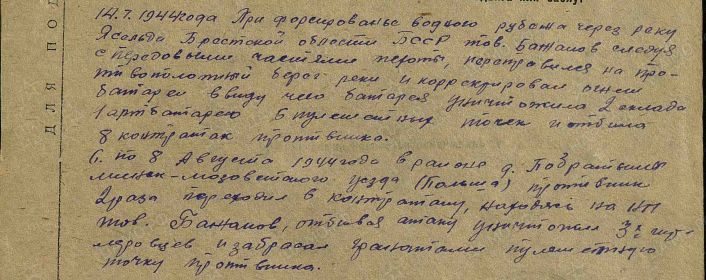 ДЛЯ ПОД
14.7.1944 года При форсированье водного рубежа через реку
Ясельда Брестской области БССР тов. Бажанов следуя
с передовыми частями пехоты, переправился на про-
тивоположный берег реки и корректировал огнем
батареи ввиду чего батарея уничтожила 2 склада
1 артбатарею 6 пулеметных точек и отбила
8 контратак противника.
С. по 8 Августа 1944 года в районе д.
минск-мозоветского уезда (Польша) противник
2 раза переходил в контратаку, находясь на НП
тов. Бажанов, отбивая атаку уничтожил 3х гит-
леровцев и забросал гранатами пулеметную
точку противника.